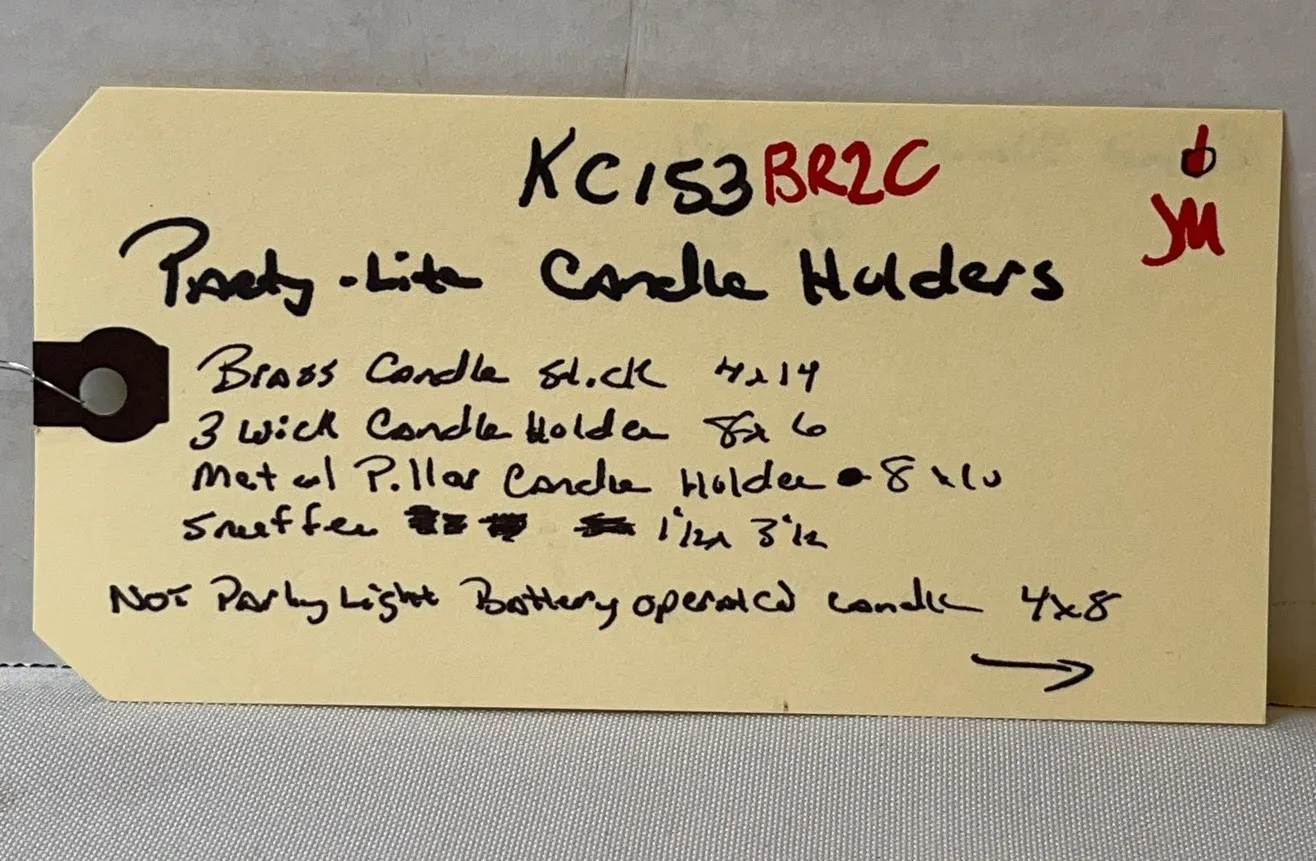 KC153 BR2C
JM
Party-Lite Candle Holders
Brass Candle stick 4x14
3 wick Candle Holder 8x6
Metal Pillar Candle Holder 8x10
Snuffer 1 1/2x 3 1/2
Not Party Light Battery operated candle 4x8